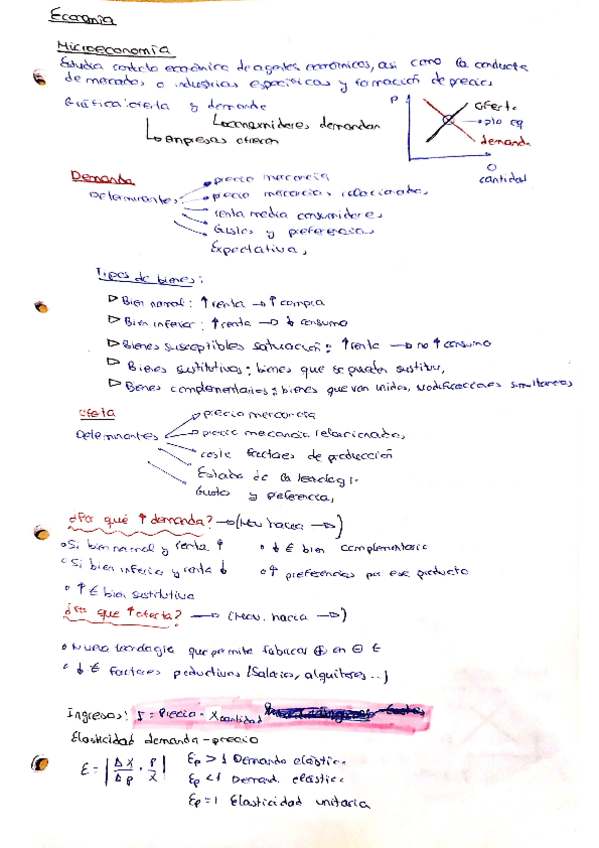 Economía
Microeconomía
Estudia contexto económico de agentes económicos, así como la conducta
de mercados o industrias específicas y formación de precios
Gráfica: oferta y demanda
consumidores demandan
empresas ofrecen
P
oferta
pto eq
demanda
Q
cantidad
Demanda
Determinantes:
precio mercancía
precio mercancías relacionadas
renta media consumidores
Gustos y preferencias
Expectativas
Tipos de bienes:
▷ Bien normal: ↑ renta → ↑ compra
▷ Bien inferior: ↑ renta → ↓ consumo
▷ Bienes susceptibles saturación: ↑ renta → no ↑ consumo
▷ Bienes sustitutivos: bienes que se pueden sustituir
▷ Bienes complementarios: bienes que van unidos, modificaciones simultáneas
Oferta
Determinantes
precio mercancía
precio mercancía relacionadas
coste factores de producción
Estado de la tecnología
Gustos y preferencias
¿Por qué ↑ demanda? → (Mov hacia →)
Si bien normal y renta ↑
↓ € bien complementario
Si bien inferior y renta ↓
↑ preferencias por ese producto
↑ € bien sustitutivo
¿Por que ↑ oferta? → (Mov. hacia →)
Nueva tecnología que permite fabricar ⊕ en ⊖ €
↓ € factores productivos (Salarios, alquileres...)
Ingresos: I = Precio · X cantidad
Elasticidad demanda - precio
E = |ΔX/ΔP · P/X|
Ep > 1 Demanda elástica
Ep < 1 Demand. elástica
Ep = 1 Elasticidad unitaria